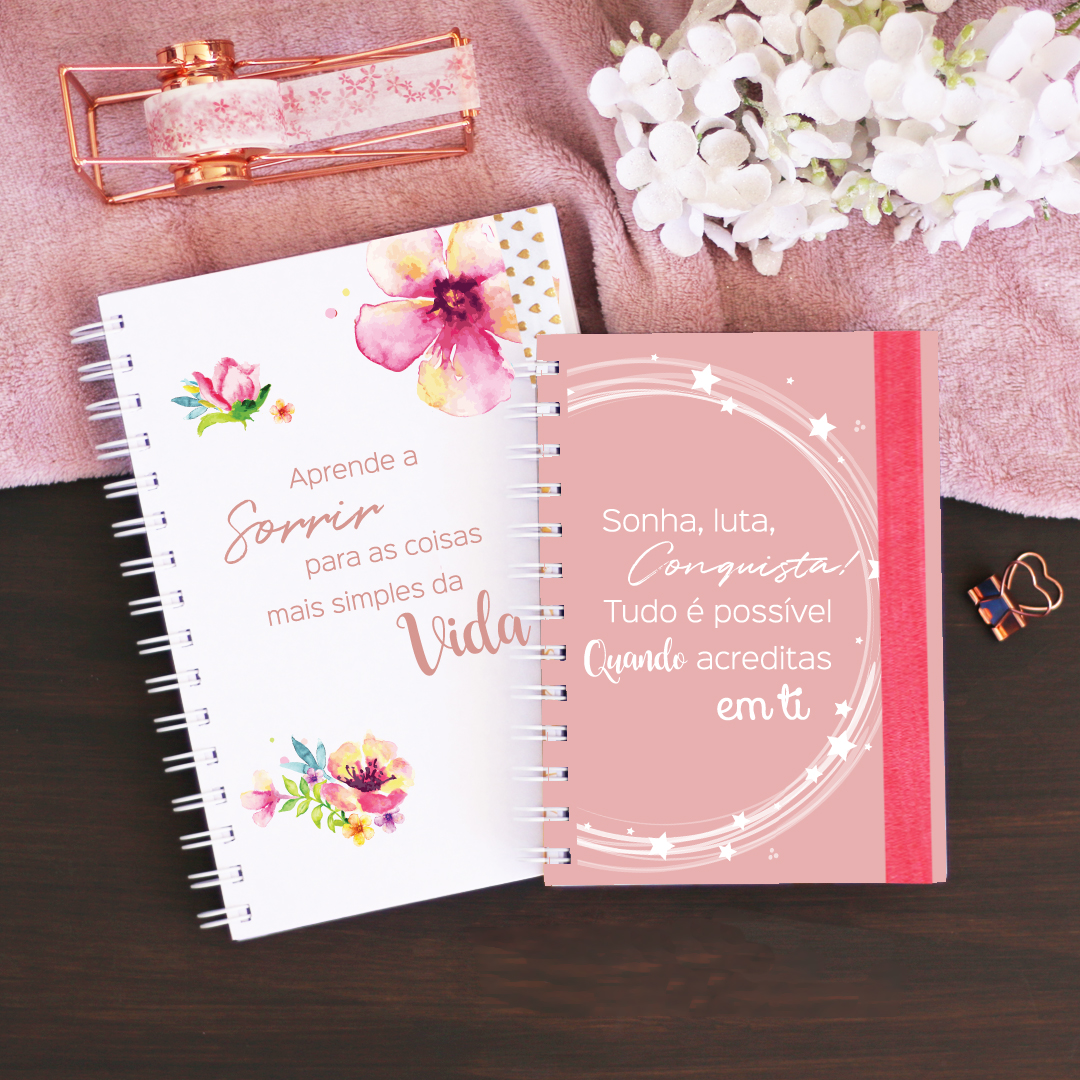 Aprende a
Sorrir
para as coisas
mais simples da
Vida
Sonha, luta,
Conquista!
Tudo é possível
Quando acreditas
em ti